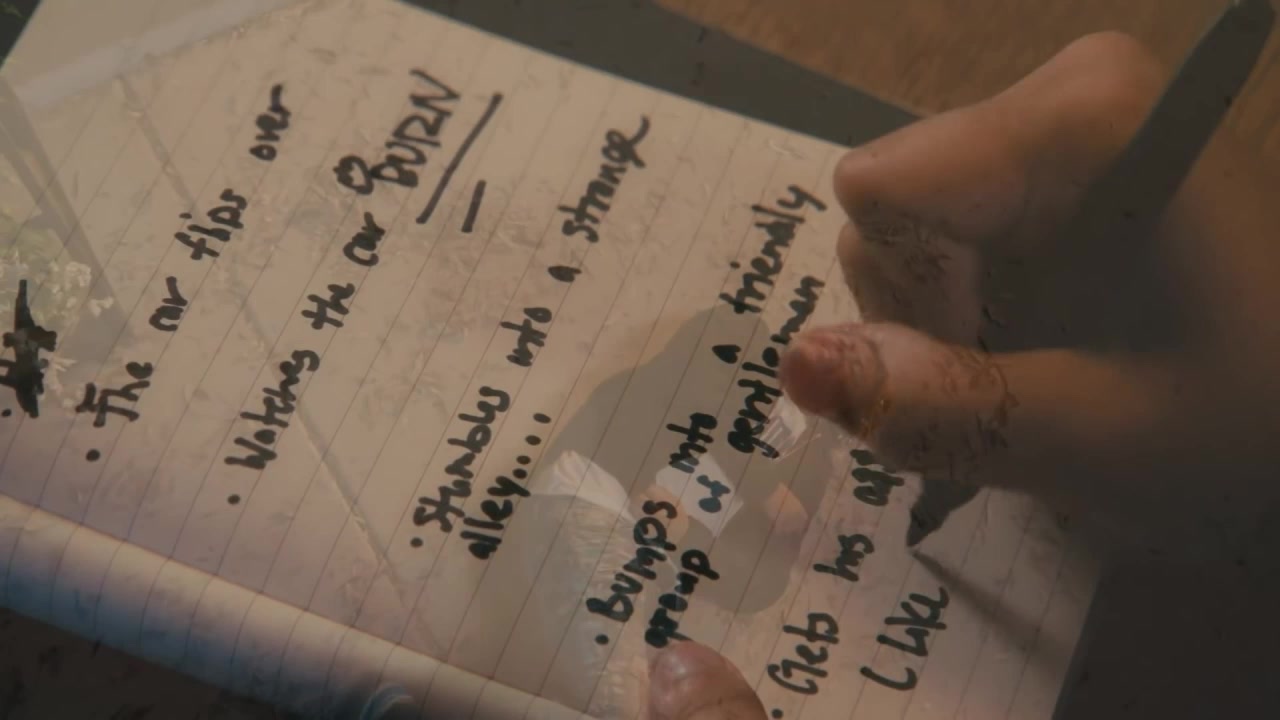 • The car flips over
• Watches the car BURN
• Stumbles into a strange
alley....
• Bumps into a friendly
group of gentlemen
• Gets his
( Like